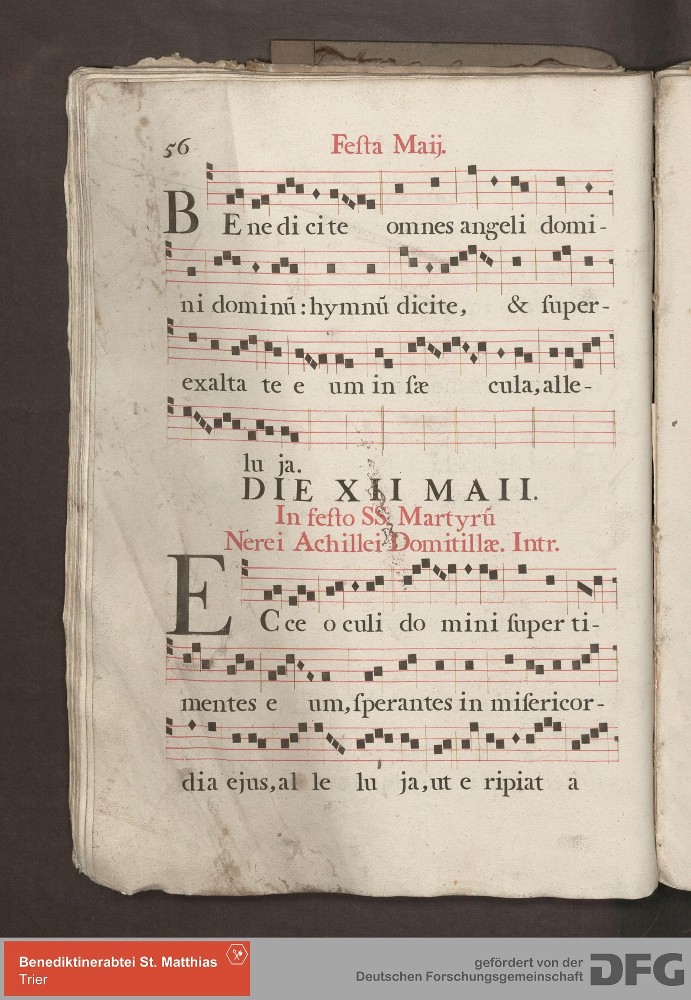 56
Feſta Maij.
BEnedicite omnes angeli domi-
ni dominū: hymnū dicite, & ſuper-
exalta te eum in ſæcula, alle-
luja.
DIE XII MAII.
In feſto SS. Martyrū
Nerei Achillei Domitillæ. Intr.
ECce oculi domini ſuper ti-
mentes eum, ſperantes in miſericor-
dia ejus, alleluja, ut eripiat a
Benediktinerabtei St. Matthias
Trier
gefördert von der
Deutschen Forschungsgemeinschaft
DFG